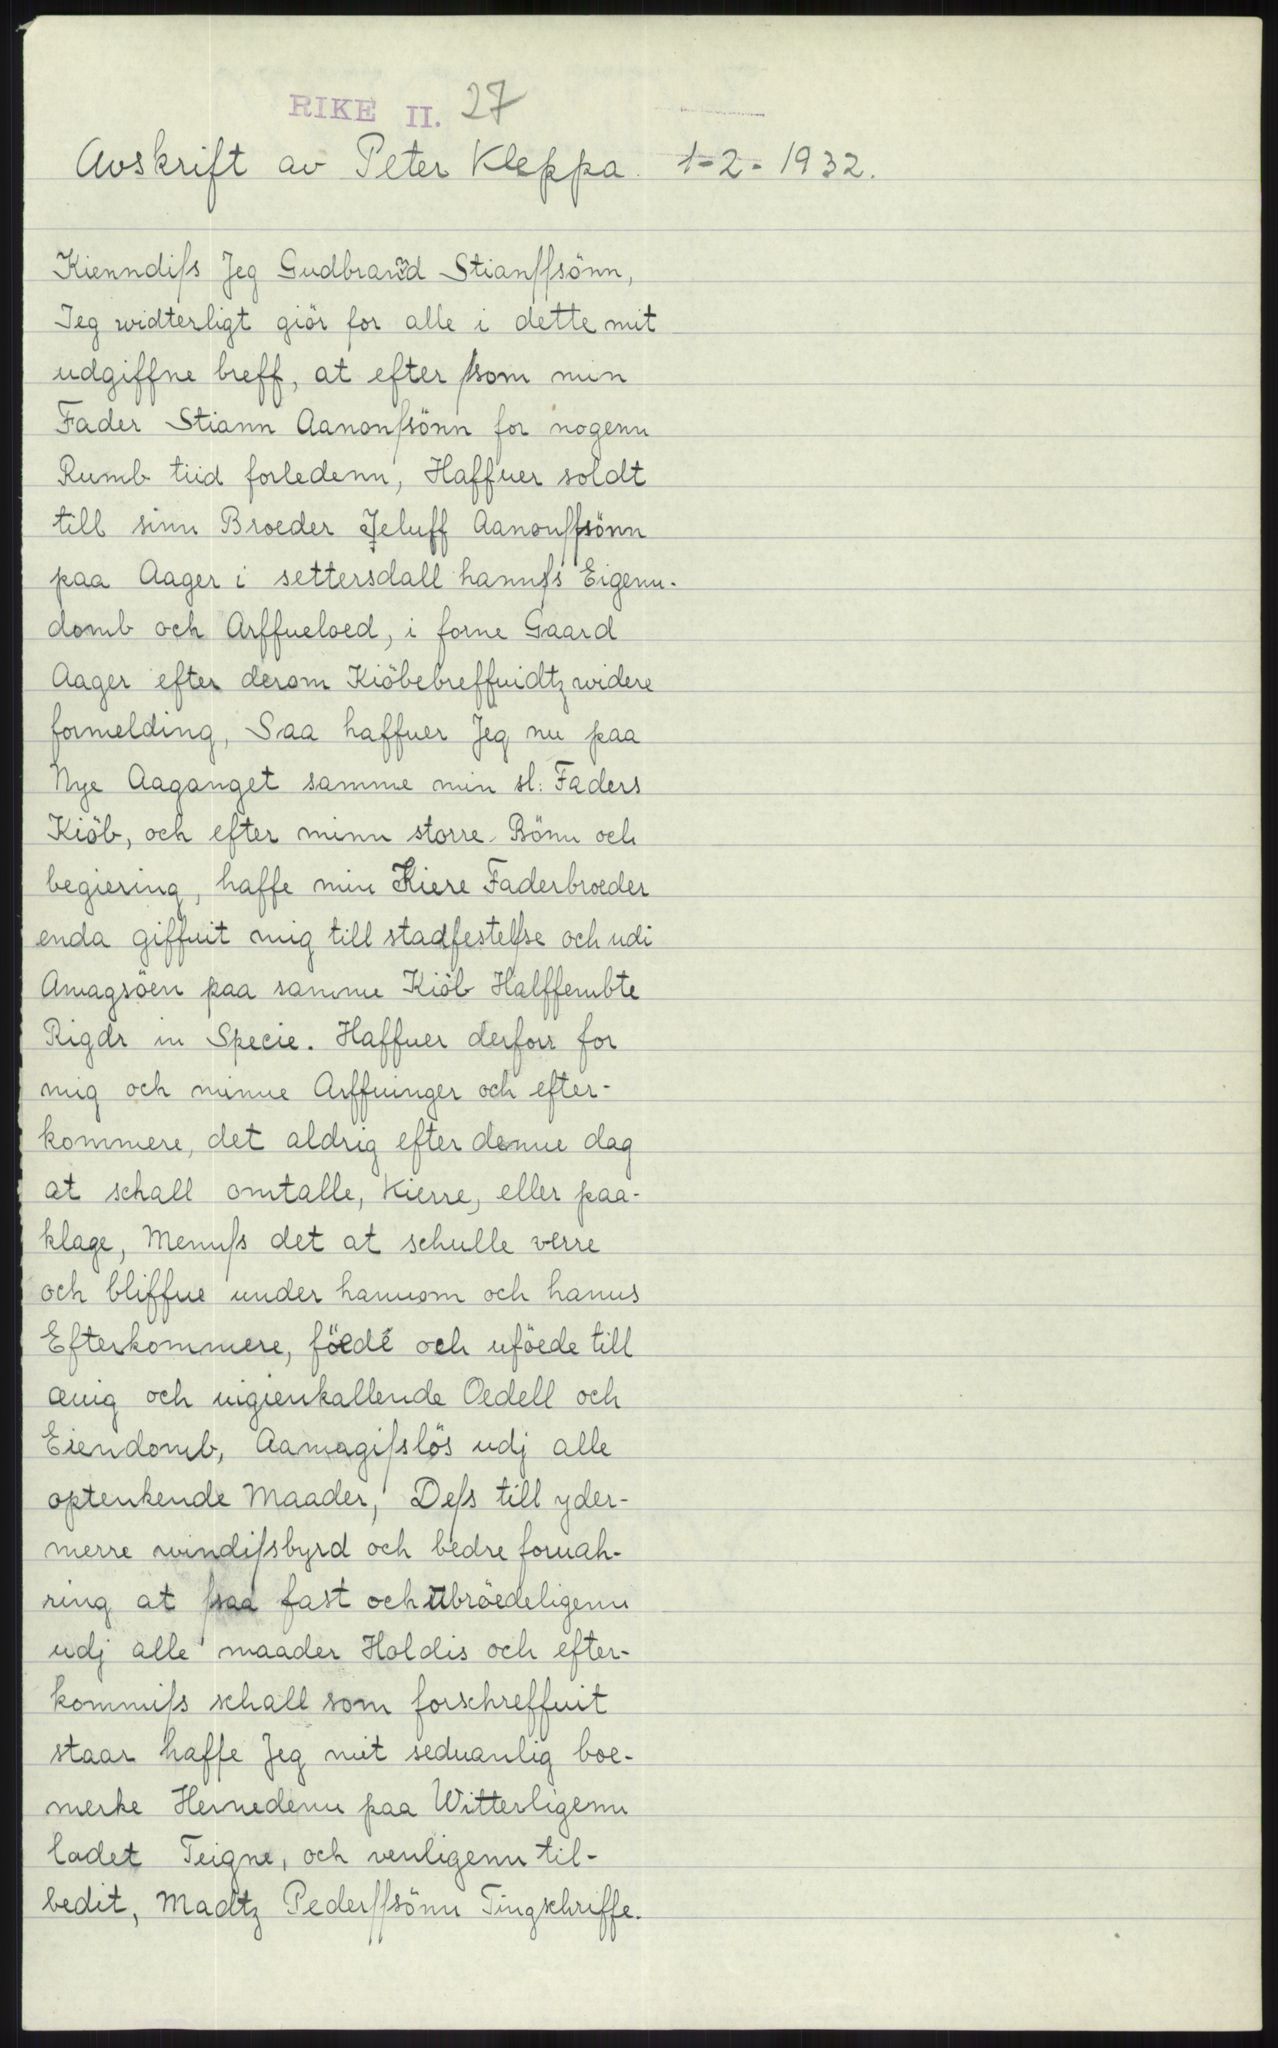 RIKE II. 27
Avskrift av Peter Kleppa. 1-2-1932.
Kienndiſs Jeg Gudbrannd Stianſſsönn,
Jeg widterligt giör for alle i dette mit
udgiffne breff, at efter ſsom min
Fader Stiann Aanonſsönn for nogenn
Rumb tiid forledenn, Haffuer soldt
till sinn Broeder Jeluff Aanonſſsönn
paa Aager i settersdall hannſs Eigenn-
domb och Arffueloed, i forne Gaard
Aager efter derom Kiöbebreffuidtz widere
formelding, Saa haffuer Jeg nu paa
Nye Aaganget samme min sl: Faders
Kiöb, och efter minn storre Bönn och
begiering, haffe min Kiere Faderbroeder
enda giffuit mig till stadfestelſse och udi
Amagsöen paa samme Kiöb Halffembte
Rigdr in Specie. Haffuer derforr for
mig och minne Arffuinger och efter-
kommere, det aldrig efter denne dag
at schall omtalle, Kierre, eller paa-
klage, Mennſs det at schulle verre
och bliffue under hannom och hanns
Efterkommere, föede och uföede till
ævig och uigienkallende Oedell och
Eiendomb, Aamagiſslös udj alle
optenkende Maader, Deſs till yder-
merre vindiſsbyrd och bedre foruah-
ring at ſsaa fast och Ubröedeligenn
udj alle maader Holdis och efter-
kommiſs schall som forschreffuit
staar haffe Jeg mit seduanlig boe-
merke Hernedenn paa Witterligenn
ladet Teigne, och venligenn til-
bedit, Madtz Pederſſsönn Tingschriffe.